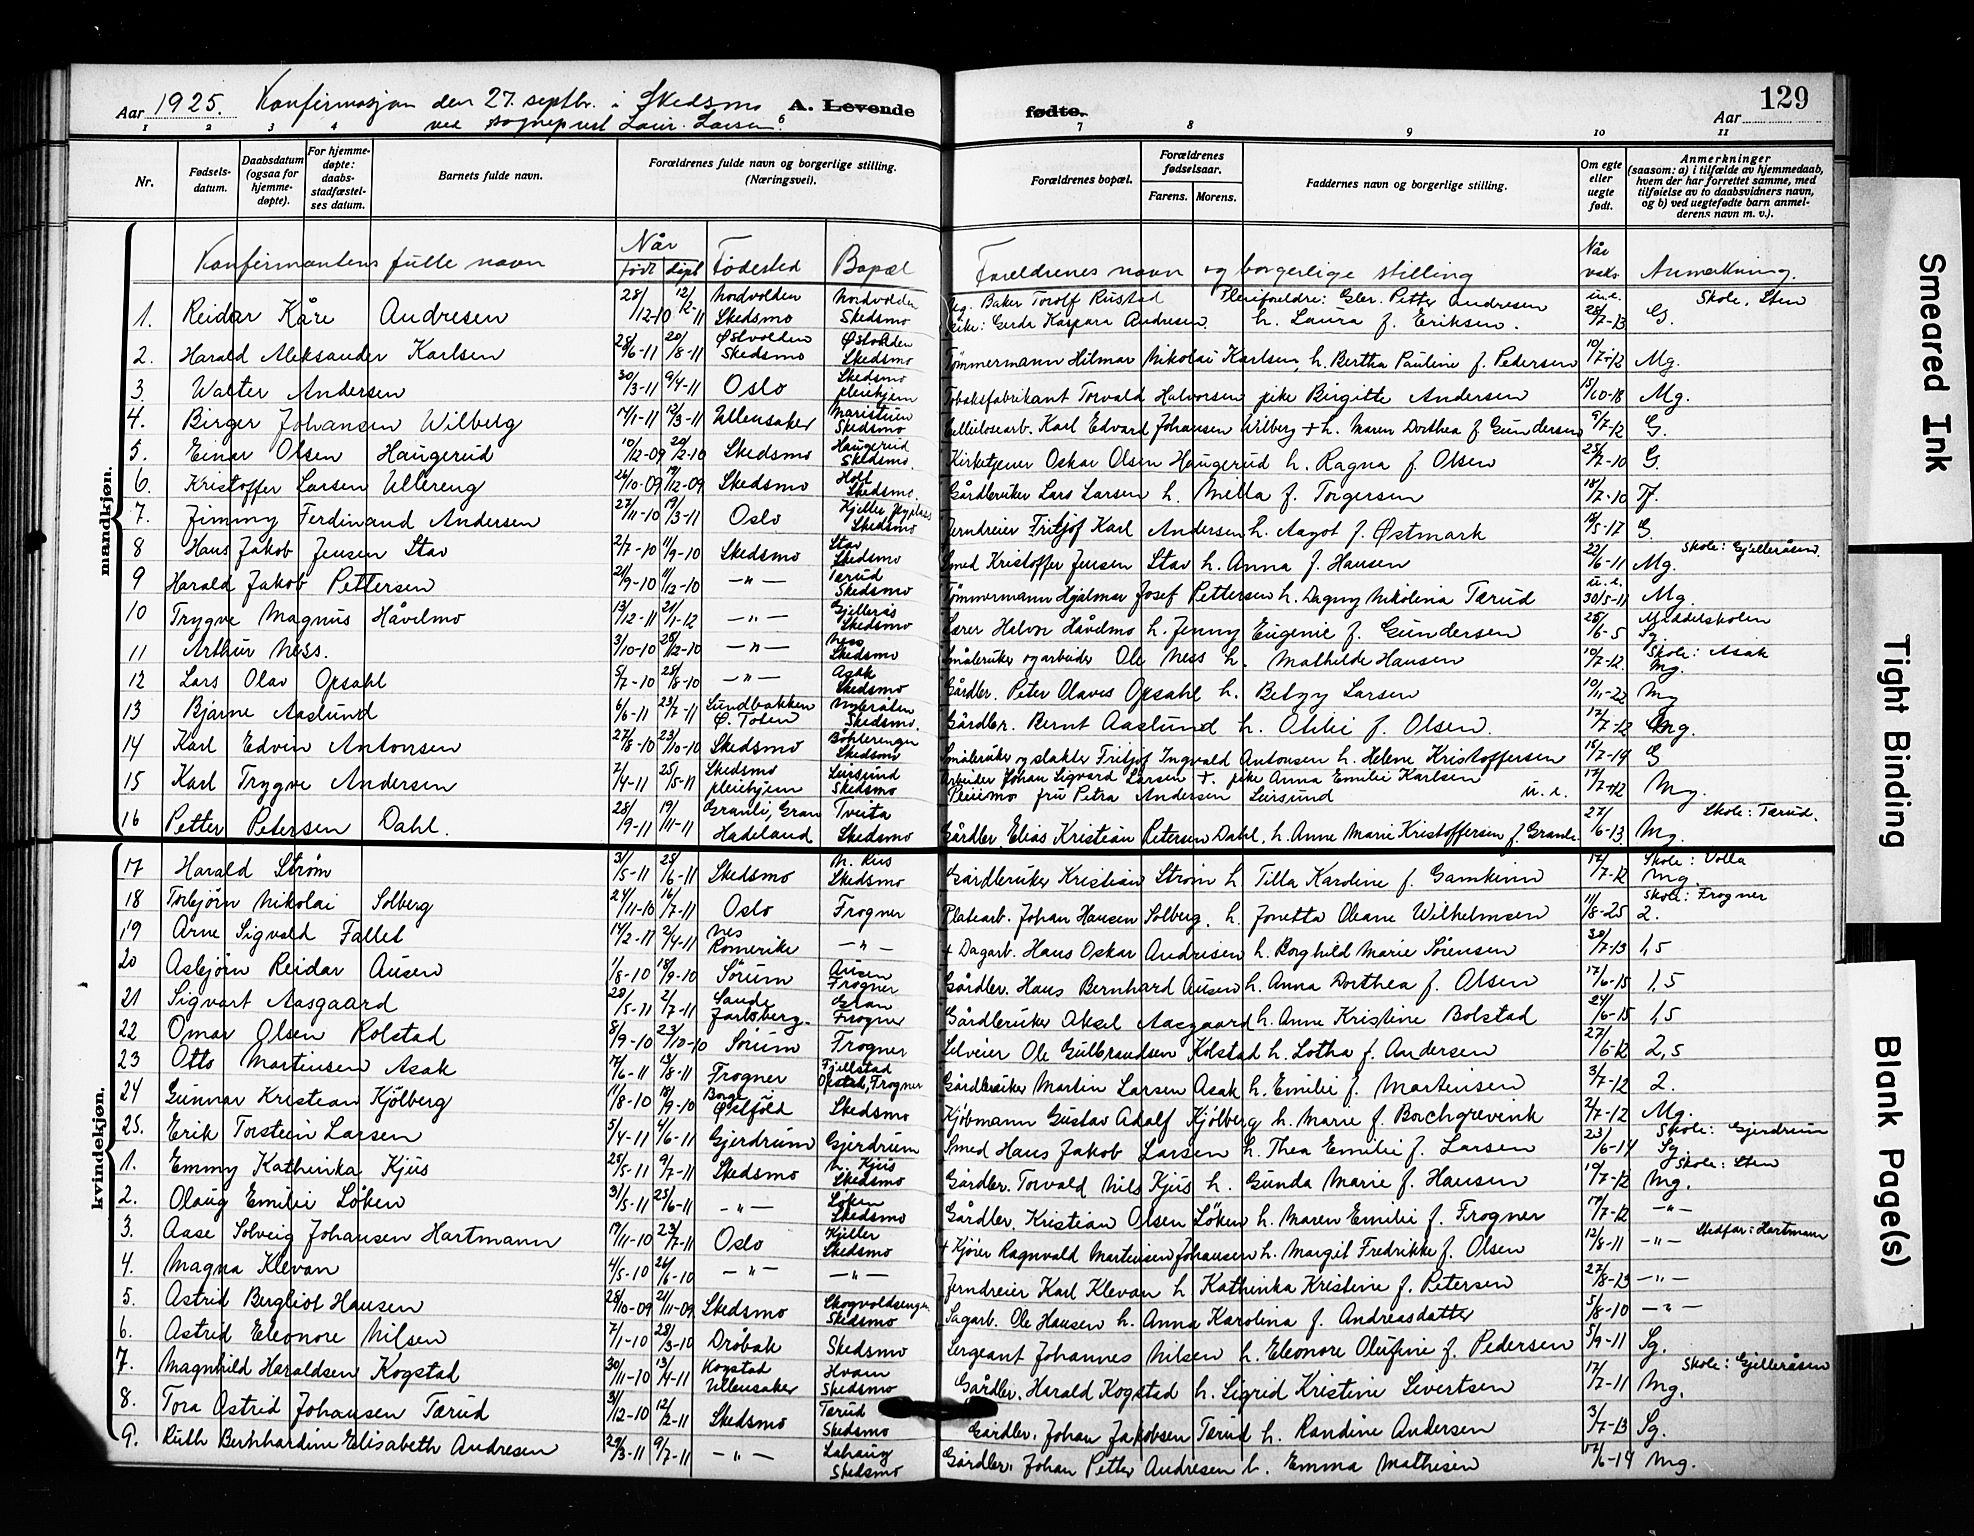 Aar 1925. Konfirmasjon den 27. septbr. i Skedsmo A. Levende
ved sogneprest Laur. Larsen.
fødte.
Aar
129
1 2 3 4 6 7 8 9 10 11
Nr.
Fødsels-
datum.
Daabsdatum
(ogsaa for
hjemme-
døpte).
For hjemme-
døpte:
daabs-
stadfæstel-
ses datum.
Barnets fulde navn.
Forældrenes fulde navn og borgerlige stilling.
(Næringsvei).
Forældrenes bopæl.
Forældrenes
fødselsaar.
Farens. Morens.
Faddernes navn og borgerlige stilling.
Om egte
eller
uegte
født.
Anmerkninger
(saasom: a) i tilfælde av hjemmedaab,
hvem der har forrettet samme, med
tilføielse av to daabsvidners navn,
og b) ved uegtefødte barn anmel-
derens navn m. v.).
Konfirmantens fulle navn
Når
født døpt
Fødested
Bopæl
Foreldrenes navn og borgerlige stilling
Når
vaks.
Anmerkning.
mandkjøn.
1. Reidar Kåre Andresen 28/12-10 12/2-11 Nordvolden Skedsmo Nordvolden Skedsmo Ug. Baker Torolf Rustad Pleieforeldre: Gbr. Petter Andresen
pike: Gerda Kaspara Andresen. h. Laura f. Eriksen. u.e. 28/7-13 G. Skole, Sten
2. Harald Aleksander Karlsen 28/6-11 20/8-11 Østvolden Skedsmo Østvolden Skedsmo Tømmermann Hilmar Nikolai Karlsen, h. Bertha Pauline f. Pedersen 10/7-12 Mg.
3. Walter Andersen 30/3-11 9/4-11 Oslo Skedsmo pleiehjem Tobaksfabrikant Torvald Halvorsen pike Birgitte Andersen 15/10-18 Mg.
4. Birger Johansen Wilberg 14/1-11 12/3-11 Ullensaker Maristuen Skedsmo Cellulosearb. Karl Edvard Johansen Wilberg + h. Maren Dorthea f Gundersen 9/7-12 G.
5. Einar Olsen Haugerud 10/12-09 20/2-10 Skedsmo Haugerud Skedsmo. Kirketjener Oskar Olsen Haugerud h. Ragna f. Olsen 25/7-10 G.
6. Kristoffer Larsen Ullereng 26/10-09 19/12-09 Skedsmo Holt Skedsmo. Gårdbruker Lars Larsen h. Milla f. Torgersen 18/7-10 Tf.
7. Jimmy Ferdinand Andersen 27/11-10 19/3-11 Oslo Kjeller Skedsmo Jerndreier Fritjof Karl Andersen h. Aagot f. Østmark 16/5-17 G.
8 Hans Jakob Jensen Stav 2/7-10 11/9-10 Skedsmo Stav Skedsmo Smed Kristoffer Jensen Stav h. Anna f. Hansen 22/6-11 Mg. Skole: Gjelleråsen.
9 Harald Jakob Pettersen 21/9-10 11/12-10 —"— Tærud Skedsmo Tømmermann Hjalmar Josef Pettersen h. Dagny Nikolina Tærud u.e. 30/5-11 Mg.
10 Trygve Magnus Håvelmo 13/12-11 21/1-12 —"— Gjellerås Skedsmo Lærer Halvor Håvelmo h. Jenny Eugenie f. Gundersen 25/6-5 Sg. Middelskolen
11 Arthur Ness. 3/10-10 25/12-10 —"— Ness Skedsmo Småbruker og arbeider Ole Ness h. Mathilde Hansen 10/7-12. Mg. Skole: Asak
12 Lars Olav Opsahl 5/7-10 28/8-10 —"— Asak Skedsmo Gårdbr. Peter Olaves Opsahl h. Betzy Larsen 10/11-22 Mg
13 Bjarne Aaslund 6/6-11 23/7-11 Lundbakken Ø. Toten Myrråten Skedsmo. Gårdbr. Bernt Aaslund h. Otilie f. Olsen. 12/7-12 Mg.
14 Karl Edvin Antonsen 27/8-10 23/10-10 Skedsmo Böhlerengen Skedsmo Småbruker og slakter Fritjof Ingvald Antonsen h. Helene Kristoffersen 15/7-14 G
15 Karl Trygve Andersen 7/4-11 25/5-11 Skedsmo pleiehjem Leirsund Skedsmo Arbeider Johan Sigvard Larsen +. pike Anna Emilie Karlsen
Pleiemo. fru Petra Andersen Leirsund u.e. 17/7-12 Mg.
16 Petter Petersen Dahl. 28/9-11 19/11-11 Granli, Gran Hadeland Tveita Skedsmo Gårdbr. Elias Kristian Petersen Dahl, h. Anne Marie Kristoffersen f. Granli 27/6-13 Mg. Skole: Tærud.
17 Harald Strøm 31/5-11 25/6-11 Skedsmo N. Kjus Skedsmo Gårdbruker Kristian Strøm h Tilla Karoline f. Gamkinn 17/7-12 Mg. Skole: Volla
18 Torbjörn Nikolai Solberg 24/11-10 16/7-11 Oslo Frogner Platearb. Johan Hansen Solberg. h. Jonetta Oleane Wilhelmsen 11/8-25 2. Skole: Frogner
19 Arne Sigvald Fallet 14/2-11 2/4-11 Nes Romerike —"— + Dagarb. Hans Oskar Andresen h. Borghild Marie Sørensen 30/7-13 1,5
20 Asbjørn Reidar Ausen 11/8-10 18/9-10 Sörum Ausen Frogner Gårdbr. Hans Bernhard Ausen h. Anna Dorthea f. Olsen 17/6-15 1,5
21 Sigvart Aasgaard 28/5-11 2/7-11 Sande Jarlsberg. Frogner Gårdbruker Aksel Aasgaard h. Anne Kristine Bolstad 24/6-15 1,5
22 Omar Olsen Kolstad 8/9-10 23/10-10 Sörum Frogner Selveier Ole Gulbrandsen Kolstad h. Lotha f. Andersen 27/6-12 2,5
23 Otto Martinsen Asak 17/6-11 13/8-11 Frogner Fjellstad Frogner Gårdbruker Martin Larsen Asak h. Emilie f. Martinsen 3/7-12 2.
24 Gunnar Kristian Kjölberg 11/8-10 18/9-10 Borge Østfold Skedsmo Kjöbmann Gustav Adolf Kjölberg h. Marie f. Borchgrevink 2/7-12 Mg.
25. Erik Torstein Larsen 5/4-11 4/6-11 Gjerdrum Gjerdrum Smed Hans Jakob Larsen h. Thea Emilie f. Larsen 23/6-14 Sg. Skole: Gjerdrum
kvindekjøn.
1. Emmy Kathinka Kjus 25/5-11 9/7-11 Skedsmo N. Kjus Skedsmo Gårdbr. Torvald Nils Kjus h. Gunda Marie f. Hansen 19/7-12 Mg. Skole: Sten
2. Olaug Emilie Löken 31/5-11 25/6-11 —"— Löken Skedsmo Gårdbr. Kristian Olsen Löken h. Maren Emilie f. Frogner 17/7-12 —"—
3. Aase Solveig Johansen Hartmann 17/11-10 23/7-11 Oslo Kjeller Skedsmo + Kjörer Ragnvald Martinsen Johansen h. Margit Fredrikke f. Olsen 12/8-11 —"— Stedfar: Hartmann
4. Magna Klevan 4/5-10 26/6-10 —"— —"— Jerndreier Karl Klevan h Kathinka Kristine f. Petersen 27/8-23 —"—
5. Astrid Bergliot Hansen 25/10-09 21/11-09 Skedsmo Skogvoldsengen Skedsmo Sagarb. Ole Hansen h. Anna Karolina f. Andreasdatter 5/8-10 —"—
6. Astrid Eleonore Nilsen 7/1-10 28/3-10 Dröbak Skedsmo Sergeant Johannes Nilsen h. Eleonore Olufine f. Pedersen 5/9-11 Sg.
7. Magnhild Haraldsen Kogstad 30/11-10 13/4-11 Kogstad Ullensaker Hvam Skedsmo Gårdbr. Harald Kogstad h. Sigrid Kristine Sivertsen 17/7-11 Mg. Skole: Gjelleråsen
8. Tora Astrid Johansen Tærud 31/12-10 12/2-11 Skedsmo Tærud Skedsmo Gårdbr. Johan Jakobsen Tærud h. Randine Andersen 3/7-13 Sg.
9. Ruth Bernhardine Elisabeth Andresen 29/3-11 9/7-11 —"— Lahaug Skedsmo Gårdbr. Johan Petter Andresen h. Emma Mathisen 17/6-14 Mg.
Smeared Ink
Tight Binding
Blank Page(s)